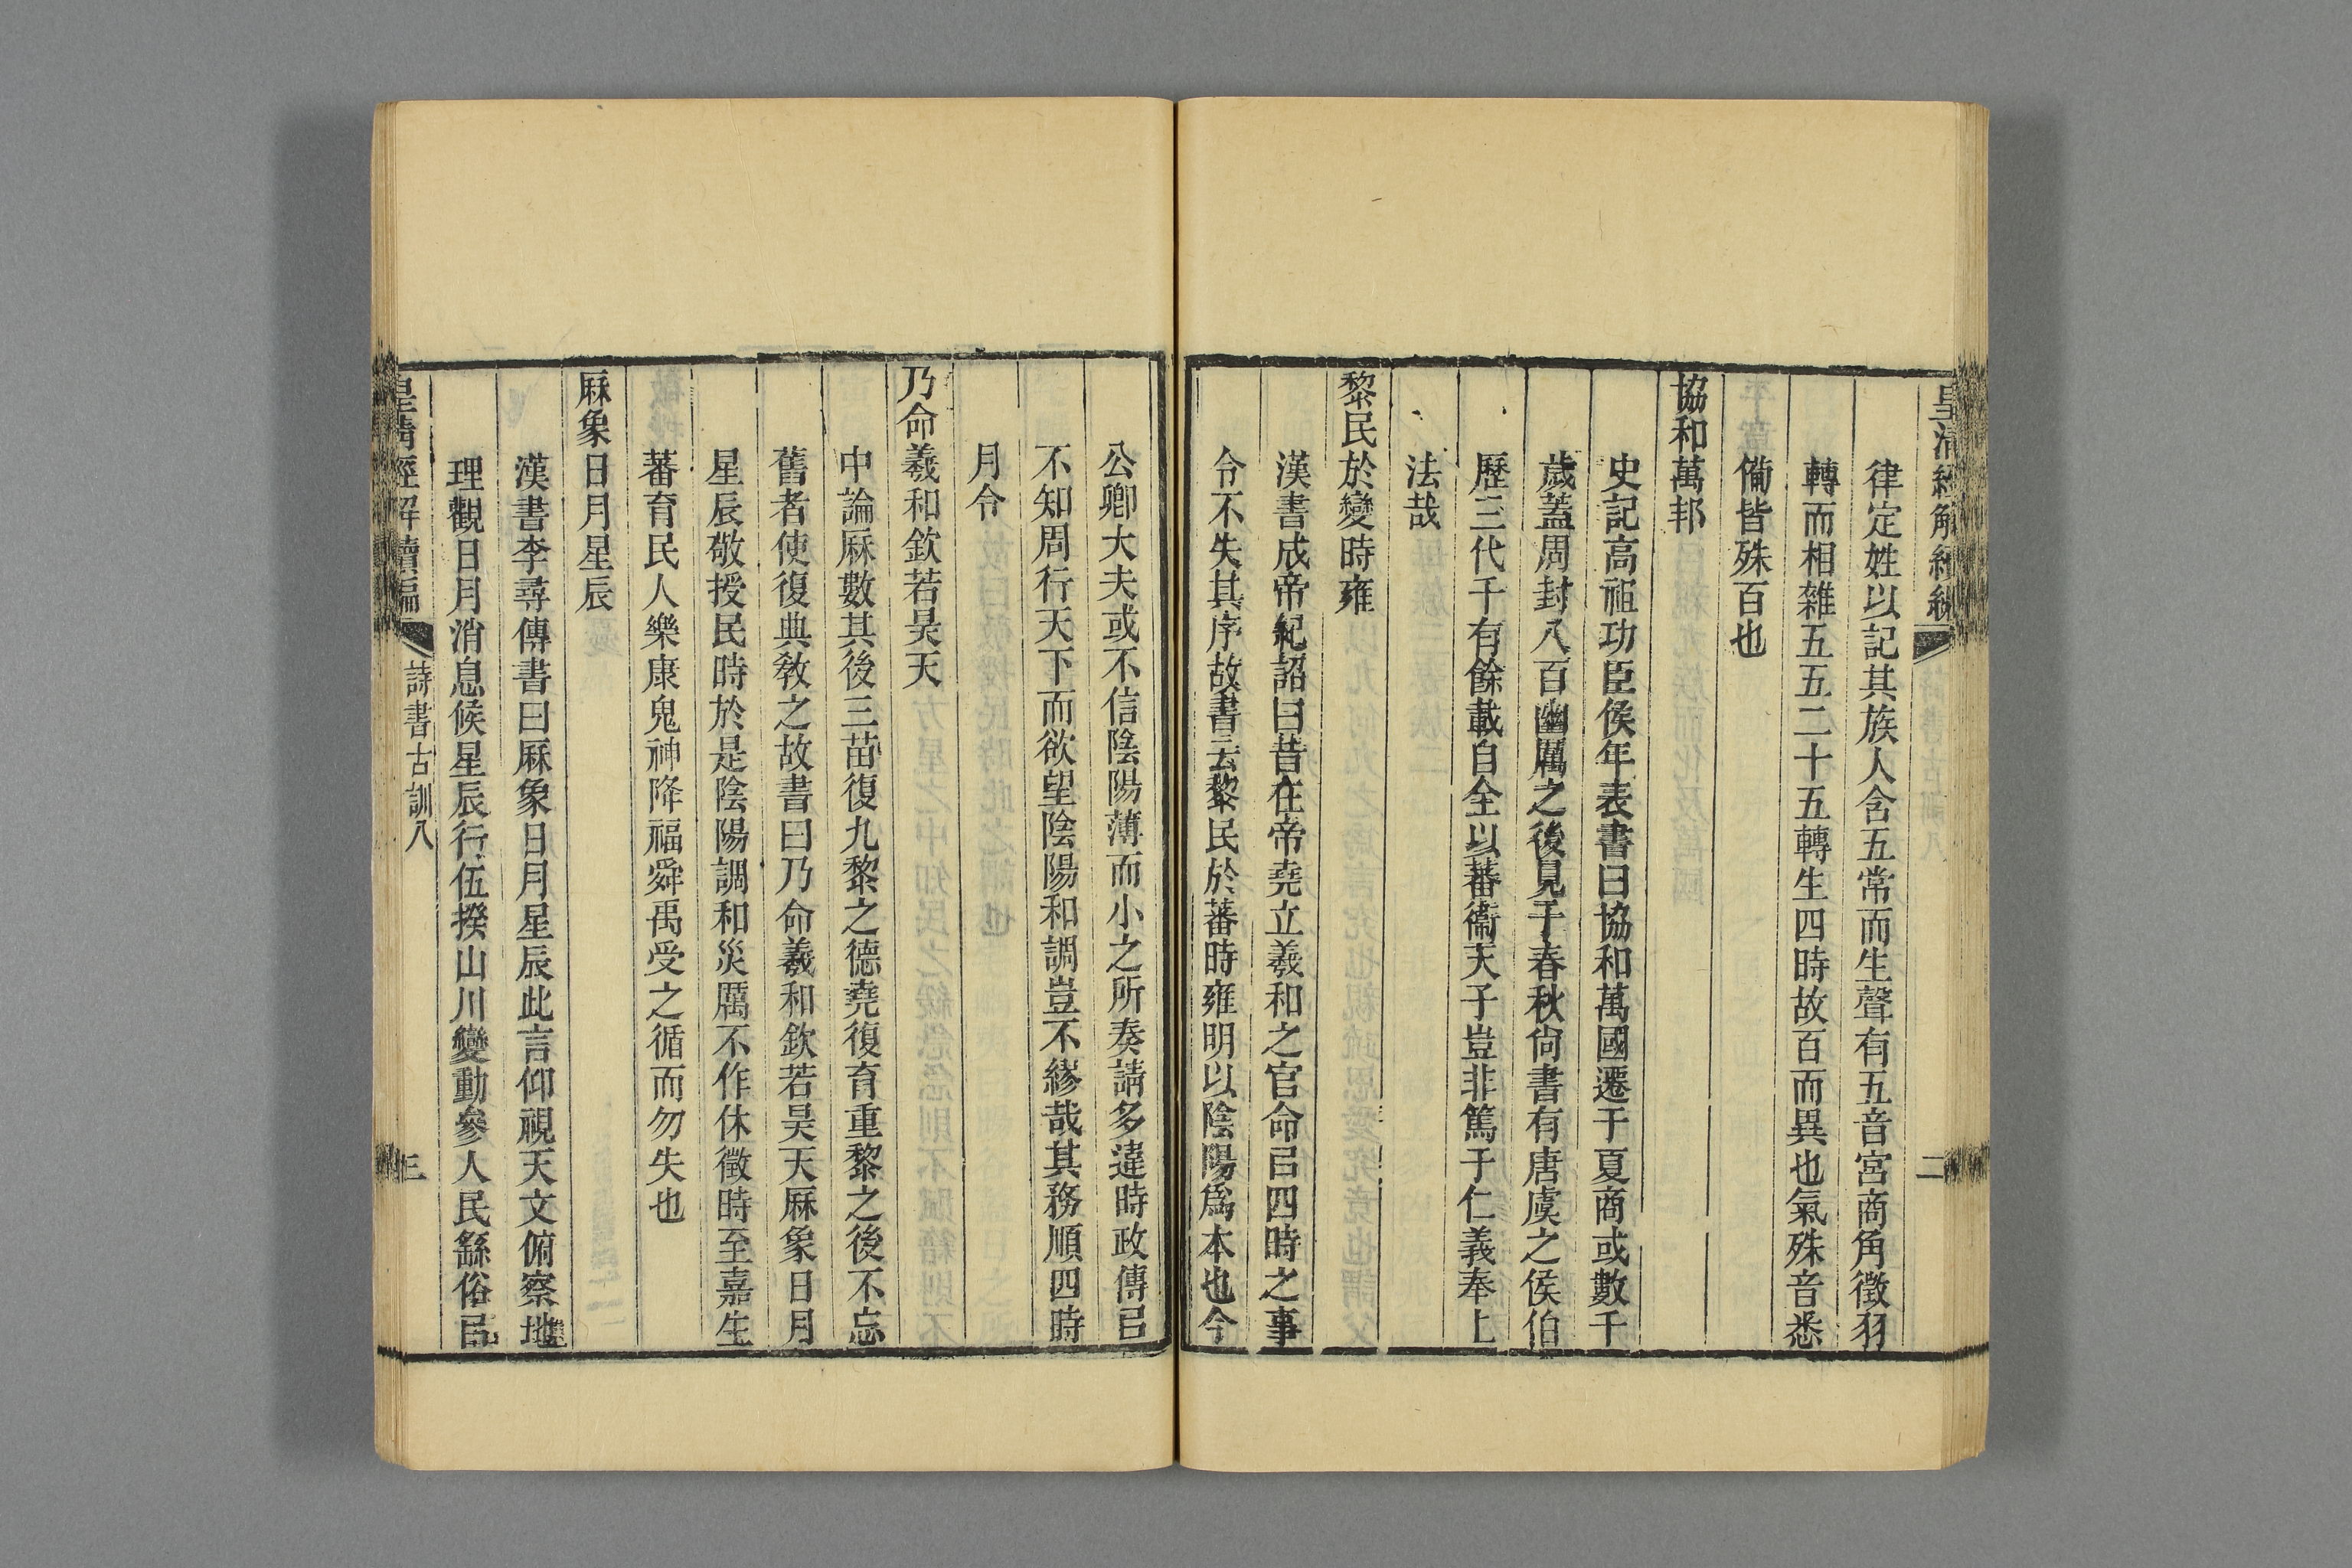 皇清經解續編
二
律定姓以記其族人含五常而生聲有五音宮商角徵羽
轉而相雜五五二十五轉生四時故百而異也氣殊音悉
僃皆殊百也
協和萬邦
史記高祖功臣侯年表書曰協和萬國遷于夏商或數千
歲蓋周封八百幽厲之後見于春秋尙書有唐虞之侯伯
歷三代千有餘載自全以蕃衞天子豈非篤于仁義奉上
法哉
黎民於變時雍
漢書成帝紀詔曰昔在帝堯立羲和之官命㠯四時之事
令不失其序故書云黎民於蕃時雍明以陰陽爲本也今
公卿大夫或不信陰陽薄而小之所奏請多違時政傳㠯
不知周行天下而欲望陰陽和調豈不繆哉其務順四時
月令
乃命羲和欽若昊天
中論厤數其後三苗復九黎之德堯復育重黎之後不忘
舊者使復典敎之故書曰乃命羲和欽若昊天厤象日月
星辰敬授民時於是陰陽調和災厲不作休徵時至嘉生
蕃育民人樂康鬼神降福舜禹受之循而勿失也
厤象日月星辰
漢書李尋傳書曰厤象日月星辰此言仰視天文俯察地
理觀日月消息候星辰行伍揆山川變動參人民繇俗㠯
皇清經解續編
詩書古訓八
三